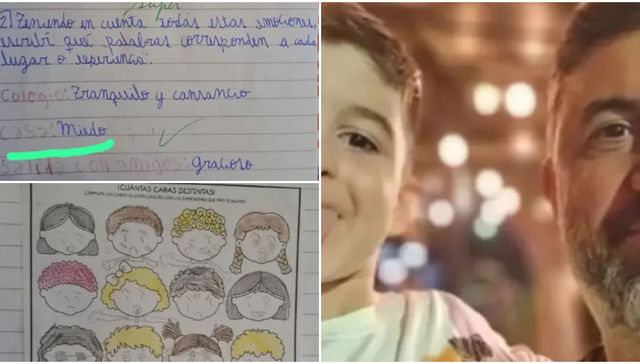 super
2) Teniendo en cuenta todas estas emociones,
escribí qué palabras corresponden a cada
lugar o experiencia:
Colegio: Tranquilo y cansancio
Casa: Miedo
Salida con amigos: Gracioso
¡CUÁNTAS CARAS DISTINTAS!
COMPLETA LAS CARAS DE ESTOS CHICOS CON LAS EXPRESIONES QUE MÁS TE GUSTEN.